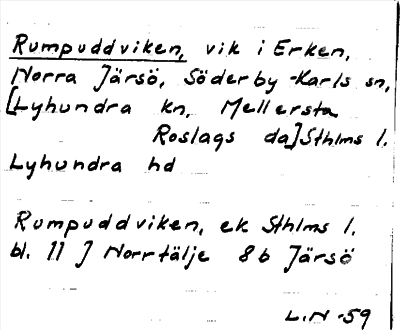 Rumpuddviken, vik i Erken,
Norra Järsö, Söderby-Karls sn,
[Lyhundra kn, Mellersta
Roslags da] Sthlms l.
Lyhundra hd
Rumpuddviken, ek Sthlms l.
bl. 11 J Norrtälje 8b Järsö
L.N -59